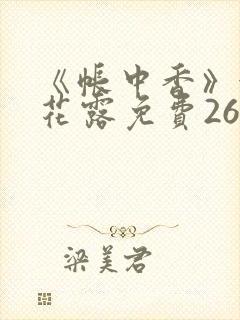 《帐中香》
花露免費26
梁美君